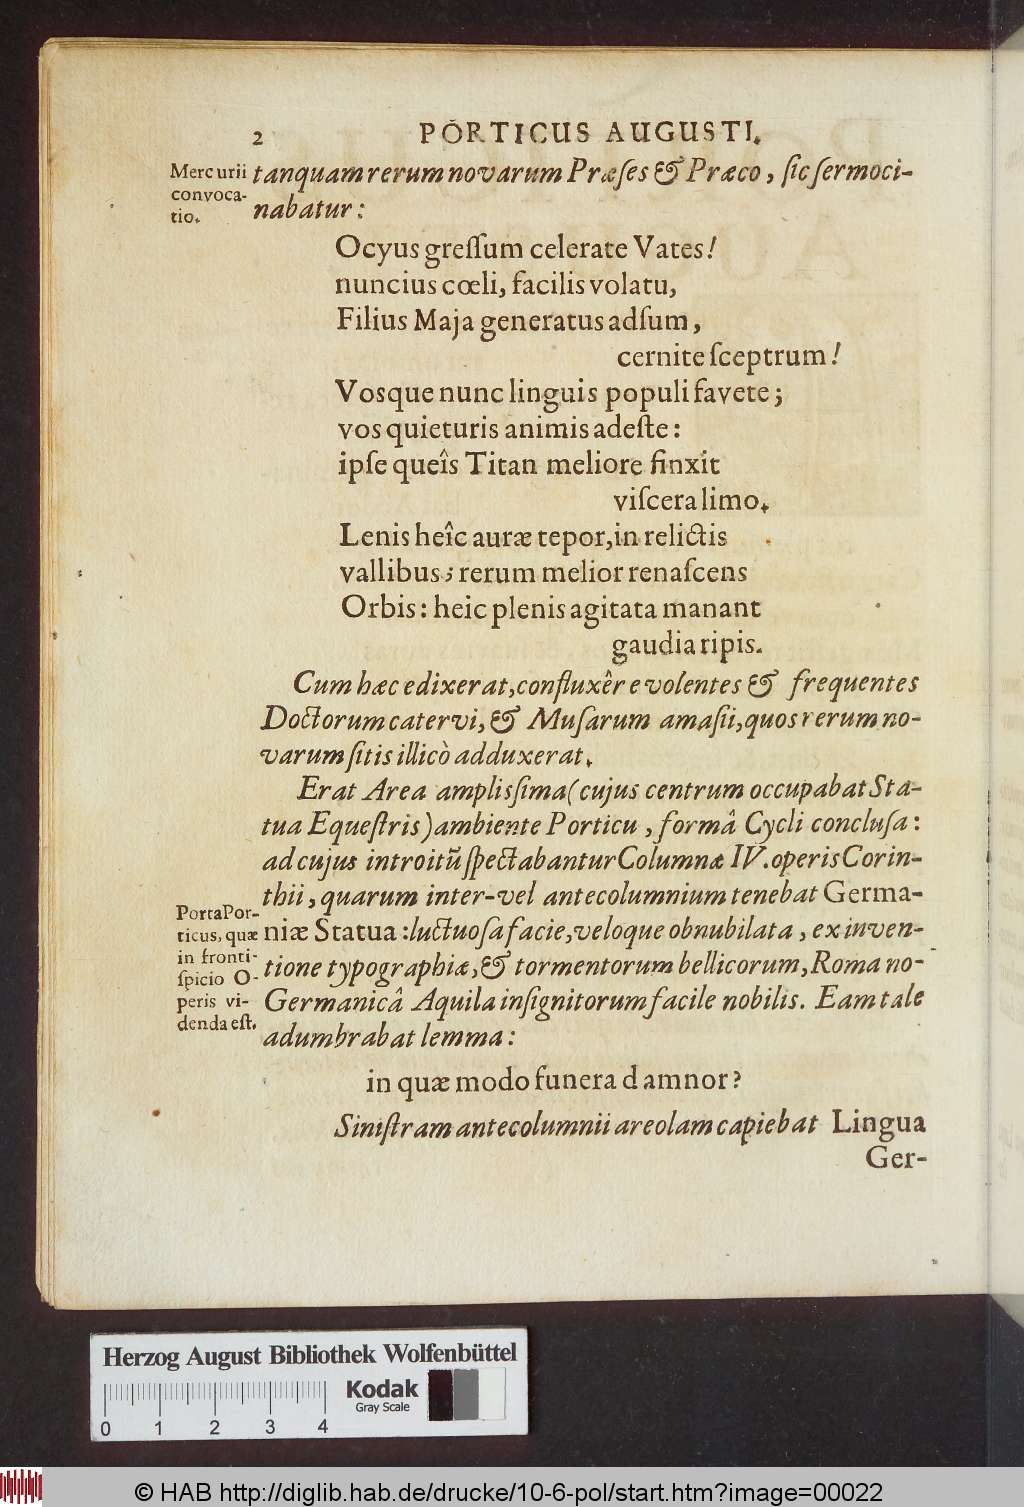 2 PORTICUS AUGUSTI.
Mercurii
convoca-
tio.
tanquam rerum novarum Præſes & Præco, ſic ſermoci-
nabatur:
Ocyus greſſum celerate Vates!
nuncius cœli, facilis volatu,
Filius Maja generatus adſum,
cernite ſceptrum!
Vosque nunc linguis populi favete;
vos quieturis animis adeſte:
ipſe queîs Titan meliore finxit
viſcera limo.
Lenis heîc auræ tepor, in relictis
vallibus; rerum melior renaſcens
Orbis: heic plenis agitata manant
gaudia ripis.
Cum hæc edixerat, confluxêre volentes & frequentes
Doctorum catervi, & Muſarum amaſii, quos rerum no-
varum ſitis illicò adduxerat.
Erat Area ampliſſima (cujus centrum occupabat Sta-
tua Equeſtris) ambiente Porticu, formâ Cycli concluſa:
ad cujus introitũ ſpectabantur Columnæ IV. operis Corin-
thii, quarum inter-vel antecolumnium tenebat Germa-
niæ Statua: luctuoſa facie, veloque obnubilata, ex inven-
tione typographiæ, & tormentorum bellicorum, Romano-
Germanicâ Aquila inſignitorum facile nobilis. Eam tale
adumbrabat lemma:
Porta Por-
ticus, quæ
in fronti-
ſpicio O-
peris vi-
denda eſt.
in quæ modo funera damnor?
Siniſtram antecolumnii areolam capiebat Lingua
Ger-
Herzog August Bibliothek Wolfenbüttel
Kodak
Gray Scale
0 1 2 3 4
© HAB http://diglib.hab.de/drucke/10-6-pol/start.htm?image=00022